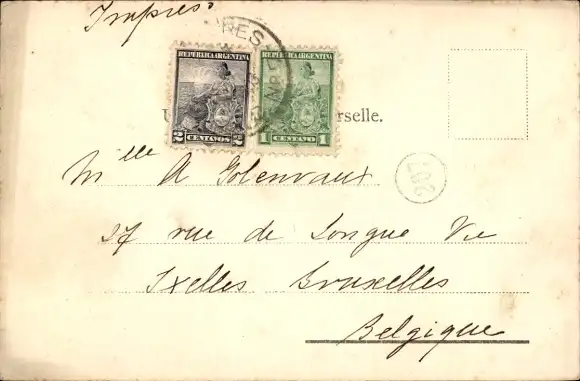 Impres
RES
REPÚBLICA ARGENTINA
2 CENTAVOS 2
REPÚBLICA ARGENTINA
1 CENTAVO 1
U rselle.
Mlle A Golenvaux
27 rue de Longue Vie
Ixelles Bruxelles
Belgique